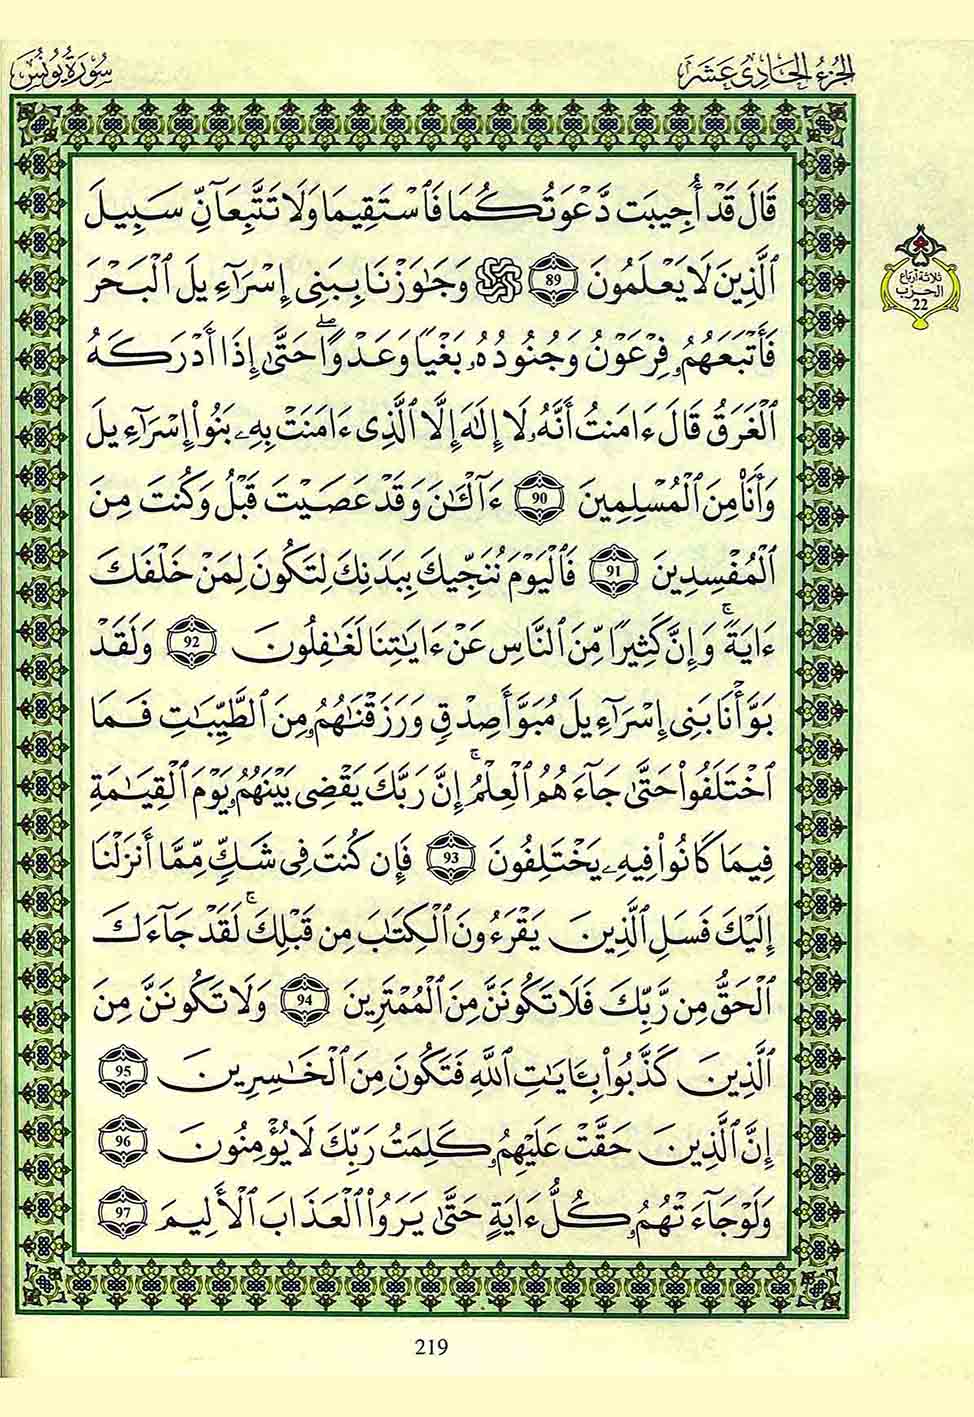 الجزء الحادي عشر
سورة يونس
قَالَ قَدْ أُجِيبَت دَّعْوَتُكُمَا فَاسْتَقِيمَا وَلَا تَتَّبِعَآنِّ سَبِيلَ
ثلاثة أرباع
الحزب
22
اَ۬لذِينَ لَا يَعْلَمُونَ 89 ۞ وَجَٰوَزْنَا بِبَنِي إِسْرَآءِيلَ اَ۬لْبَحْرَ
فَأَتْبَعَهُمُۥ فِرْعَوْنُ وَجُنُودُهُۥ بَغْيًا وَعَدْوًاۖ حَتَّىٰ إِذَا أَدْرَكَهُ
اُ۬لْغَرَقُ قَالَ ءَامَنتُ أَنَّهُۥ لَا إِلَٰهَ إِلَّا اَ۬لذِي ءَامَنَتْ بِهِۦ بَنُواْ إِسْرَآءِيلَ
وَأَنَا۠ مِنَ اَ۬لْمُسْلِمِينَ 90 ءَآلْـَٰٔنَ وَقَدْ عَصَيْتَ قَبْلُ وَكُنتَ مِنَ
اَ۬لْمُفْسِدِينَ 91 فَالْيَوْمَ نُنَجِّيكَ بِبَدَنِكَ لِتَكُونَ لِمَنْ خَلْفَكَ
ءَايَةًۚ وَإِنَّ كَثِيرًا مِّنَ اَ۬لنَّاسِ عَنْ ءَايَٰتِنَا لَغَٰفِلُونَ 92 وَلَقَدْ
بَوَّأْنَا بَنِي إِسْرَآءِيلَ مُبَوَّأَ صِدْقٍ وَرَزَقْنَٰهُمُۥ مِنَ اَ۬لطَّيِّبَٰتِ فَمَا
اَ۪خْتَلَفُواْ حَتَّىٰ جَآءَهُمُ اُ۬لْعِلْمُۚ إِنَّ رَبَّكَ يَقْضِي بَيْنَهُمُۥ يَوْمَ اَ۬لْقِيَٰمَةِ
فِيمَا كَانُواْ فِيهِۦ يَخْتَلِفُونَ 93 فَإِن كُنتَ فِي شَكٍّ مِّمَّا أَنزَلْنَا
إِلَيْكَ فَسَلِ اِ۬لذِينَ يَقْرَءُونَ اَ۬لْكِتَٰبَ مِن قَبْلِكَۚ لَقَدْ جَآءَكَ
اَ۬لْحَقُّ مِن رَّبِّكَ فَلَا تَكُونَنَّ مِنَ اَ۬لْمُمْتَرِينَ 94 وَلَا تَكُونَنَّ مِنَ
اَ۬لذِينَ كَذَّبُواْ بِـَٔايَٰتِ اِ۬للَّهِ فَتَكُونَ مِنَ اَ۬لْخَٰسِرِينَ 95
إِنَّ اَ۬لذِينَ حَقَّتْ عَلَيْهِمُۥ كَلِمَتُ رَبِّكَ لَا يُؤْمِنُونَ 96
وَلَوْ جَآءَتْهُمُۥ كُلُّ ءَايَةٍ حَتَّىٰ يَرَوُاْ اُ۬لْعَذَابَ اَ۬لْأَلِيمَ 97
219